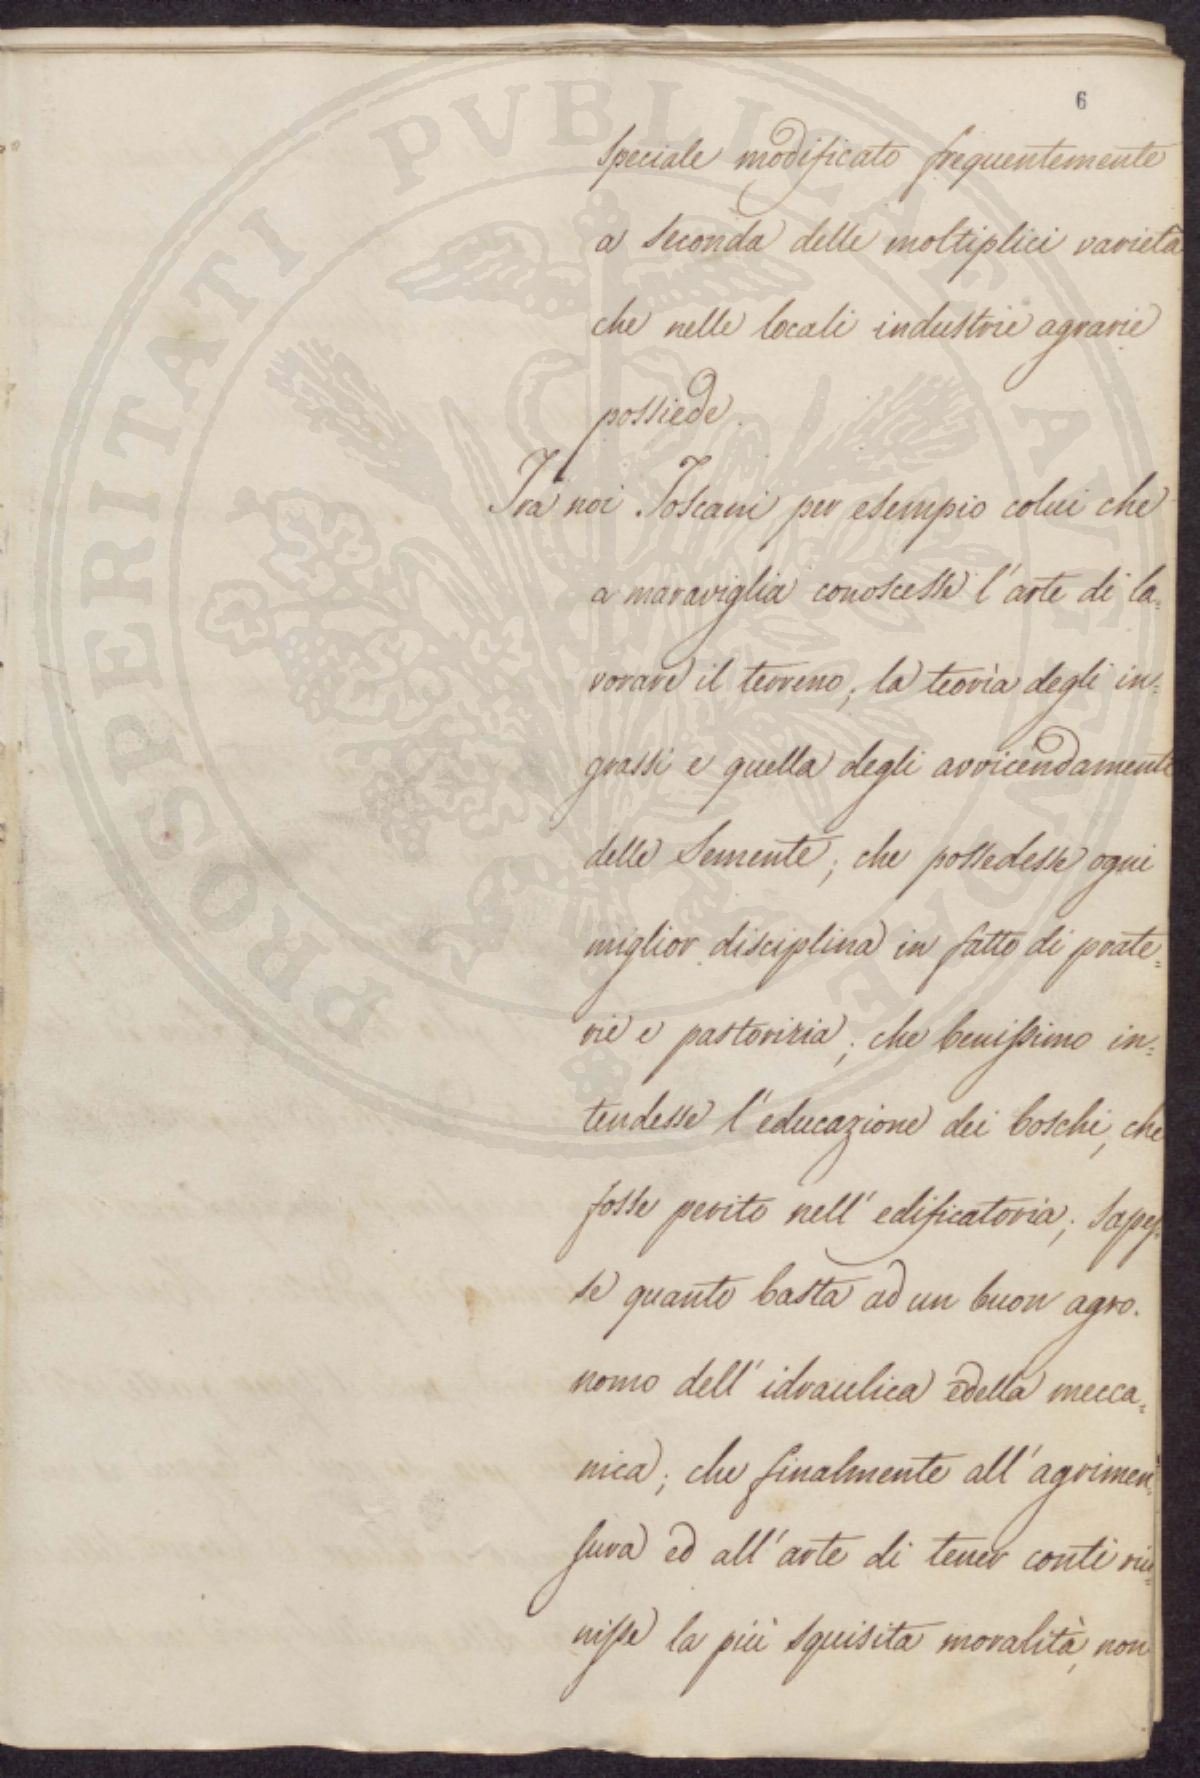 6
speciale modificato frequentemente
a seconda delle moltiplici varietà
che nelle locali industrie agrarie
possiede.
Tra noi Toscani per esempio colui che
a maraviglia conoscesse l'arte di la=
vorare il terreno; la teorìa degli in=
grassi e quella degli avvicendamenti
delle Semente; che possedesse ogni
miglior disciplina in fatto di prate=
rie e pastorizia; che benissimo in=
tendesse l'educazione dei boschi, che
fosse perito nell'edificatoria; Sapes=
se quanto basta ad un buon agro=
nomo dell'idraulica e della mecca=
nica; che finalmente all'agrimen=
sura ed all'arte di tener conti riu=
nisse la più squisita moralità, non
PROSPERITATI PVBLICAE AVGENDAE